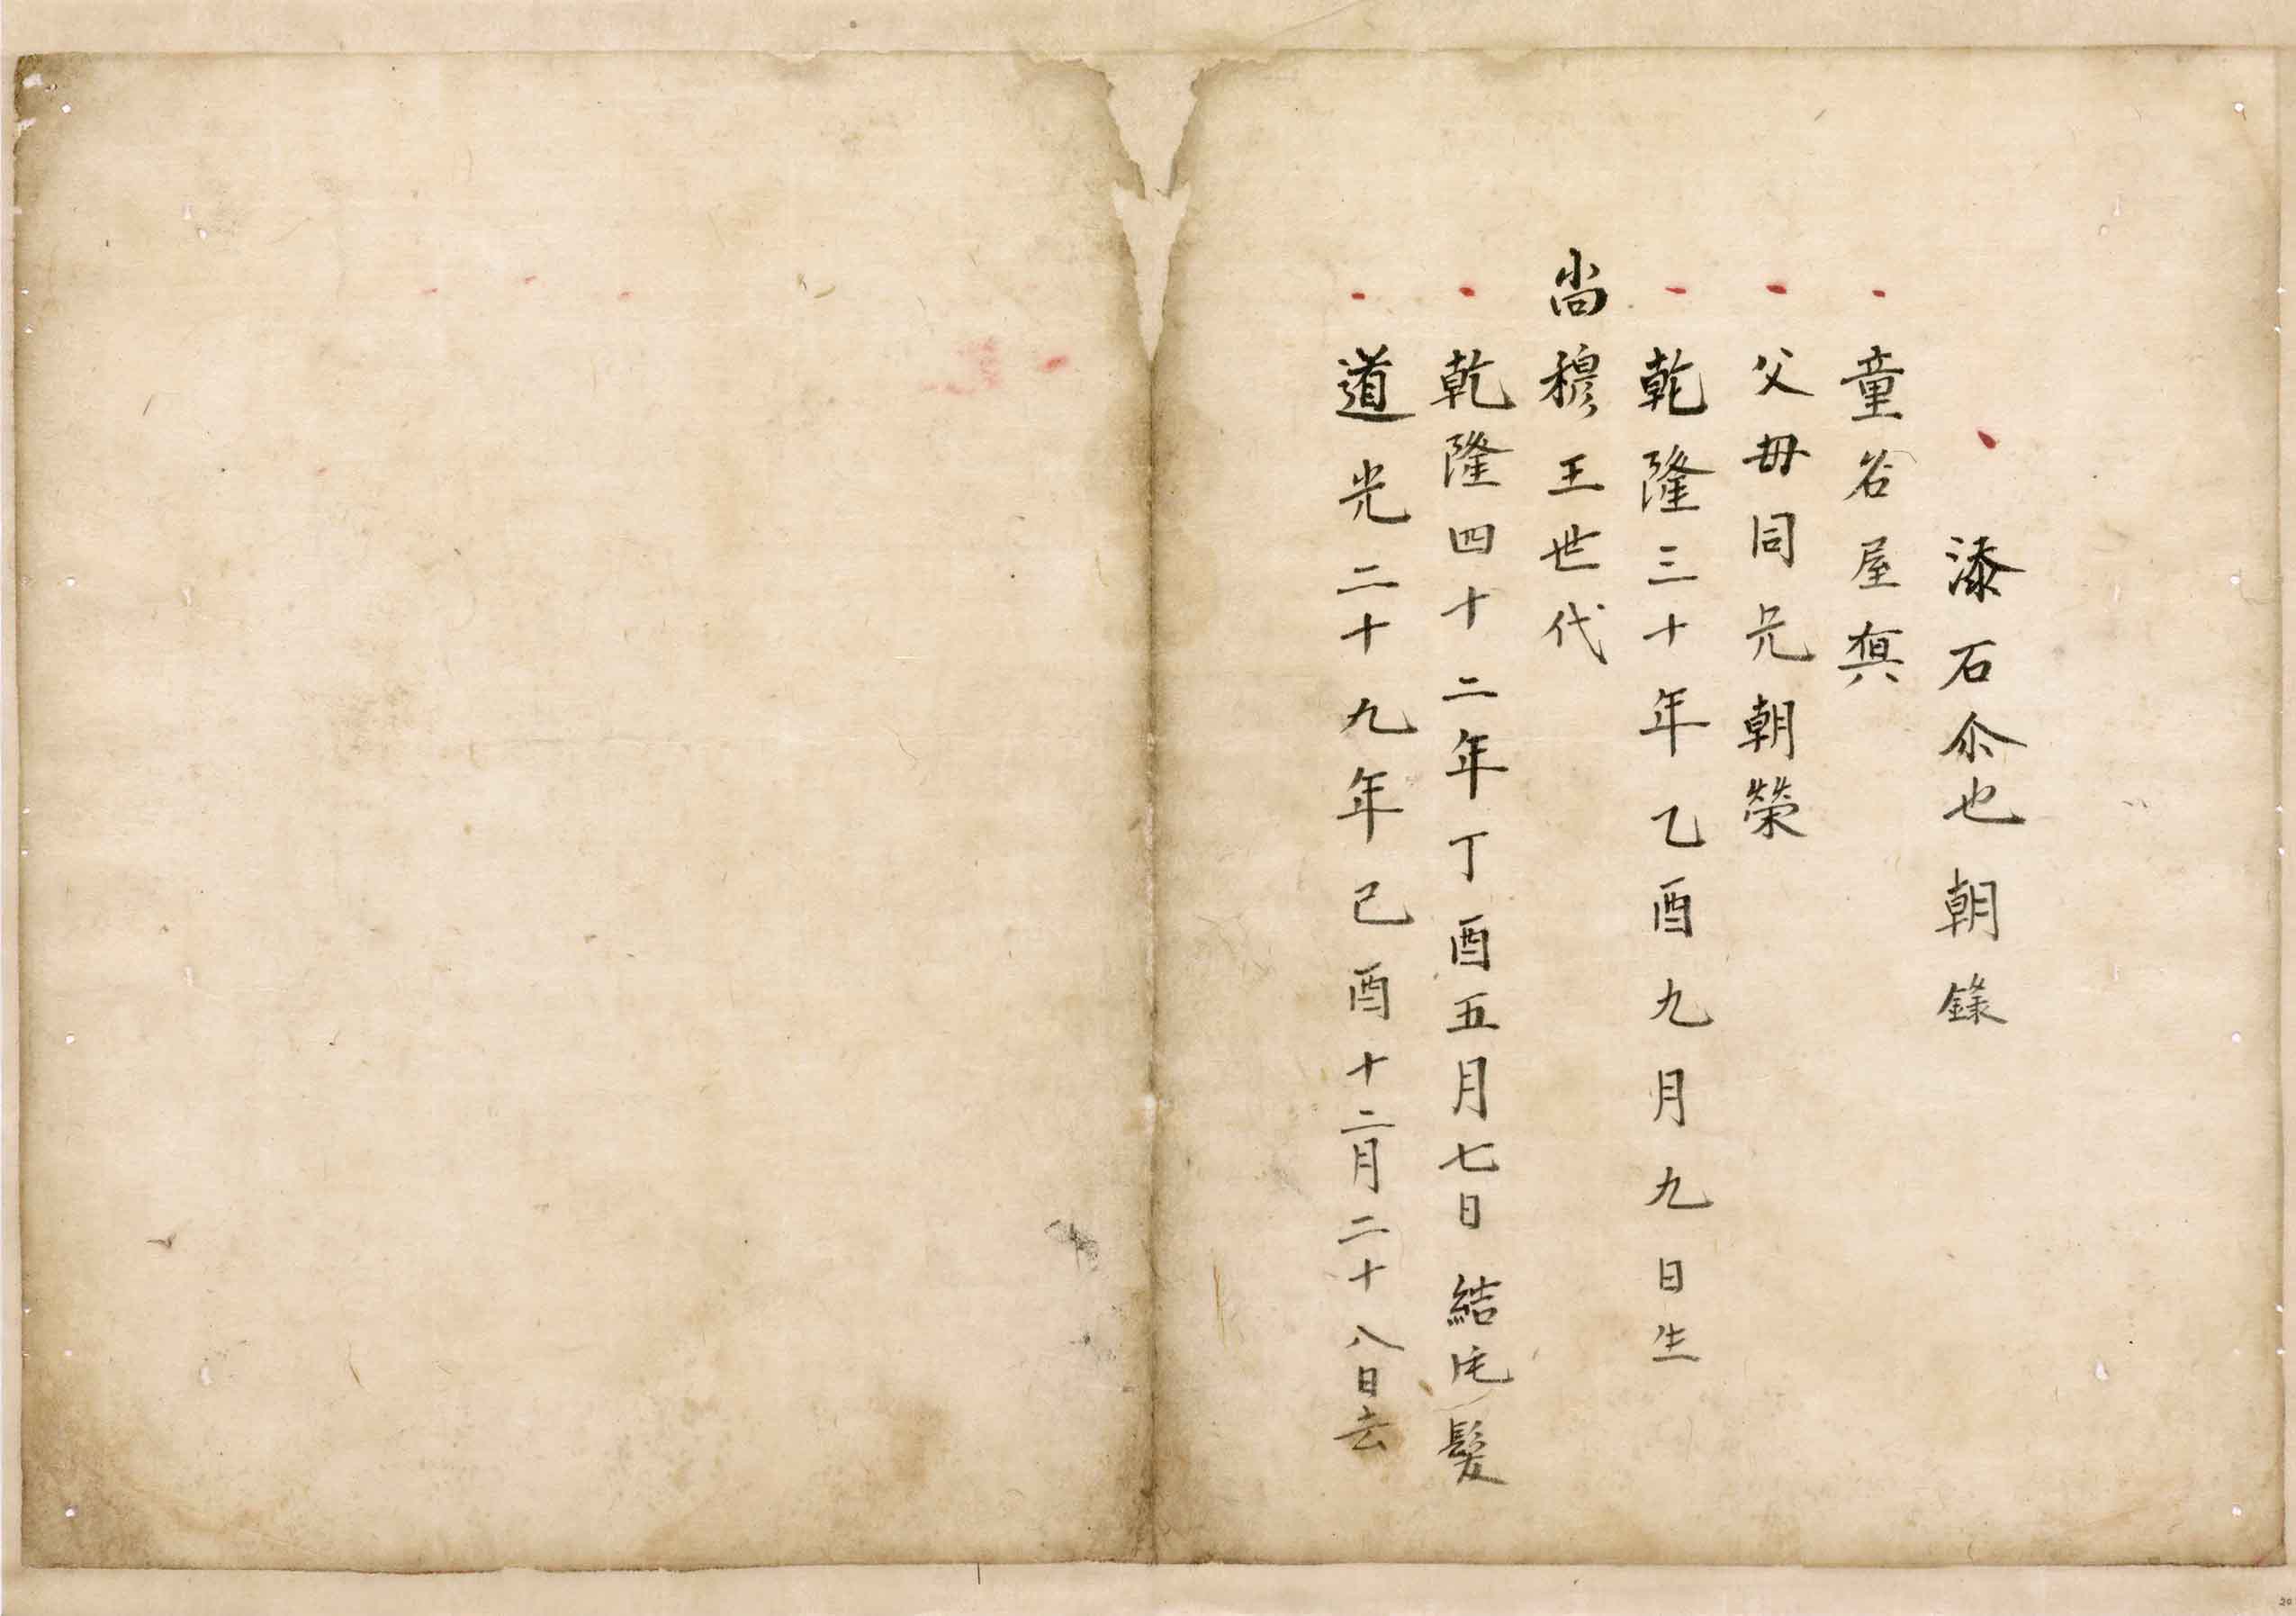 漆石尒也朝錄
童名屋真
父毋同兄朝榮
乾隆三十年乙酉九月九日生
尚穆王世代
乾隆四十二年丁酉五月七日結髮
道光二十九年己酉十二月二十八日去